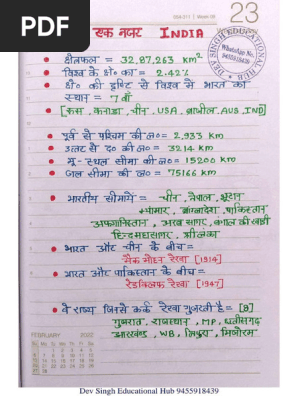 PDF
23
एक नजर INDIA
DEV SINGH EDUCATIONAL HUB
WhatsApp No.
9455918439
• क्षेत्रफल = 32,87,263 km²
• विश्व के क्षे० का = 2.42%
• क्षे० की दृष्टि से विश्व में भारत का
स्थान = 7 वाँ
[रूस, कनाडा, चीन, USA, ब्राजील, AUS, IND]
• पूर्व से पश्चिम की ल० = 2,933 km
• उत्तर से द० की ल० = 3214 km
• भू-स्थल सीमा की ल० = 15200 km
• जल सीमा की ल० = 75166 km
• भारतीय सीमायें - चीन, नेपाल, भूटान
म्यांमार, बांग्लादेश, पाकिस्तान
अफगानिस्तान, अरब सागर, बंगाल की खाड़ी
हिन्दमहासागर, श्रीलंका
• भारत और चीन के बीच =
मैक मोहन रेखा [1914]
• भारत और पाकिस्तान के बीच =
रेडक्लिफ रेखा [1947]
• वे राज्य जिससे कर्क रेखा गुजरती है = [8]
गुजरात, राजस्थान, MP, छत्तीसगढ़
झारखण्ड, WB, त्रिपुरा, मिजोरम
FEBRUARY 2022
Dev Singh Educational Hub 9455918439